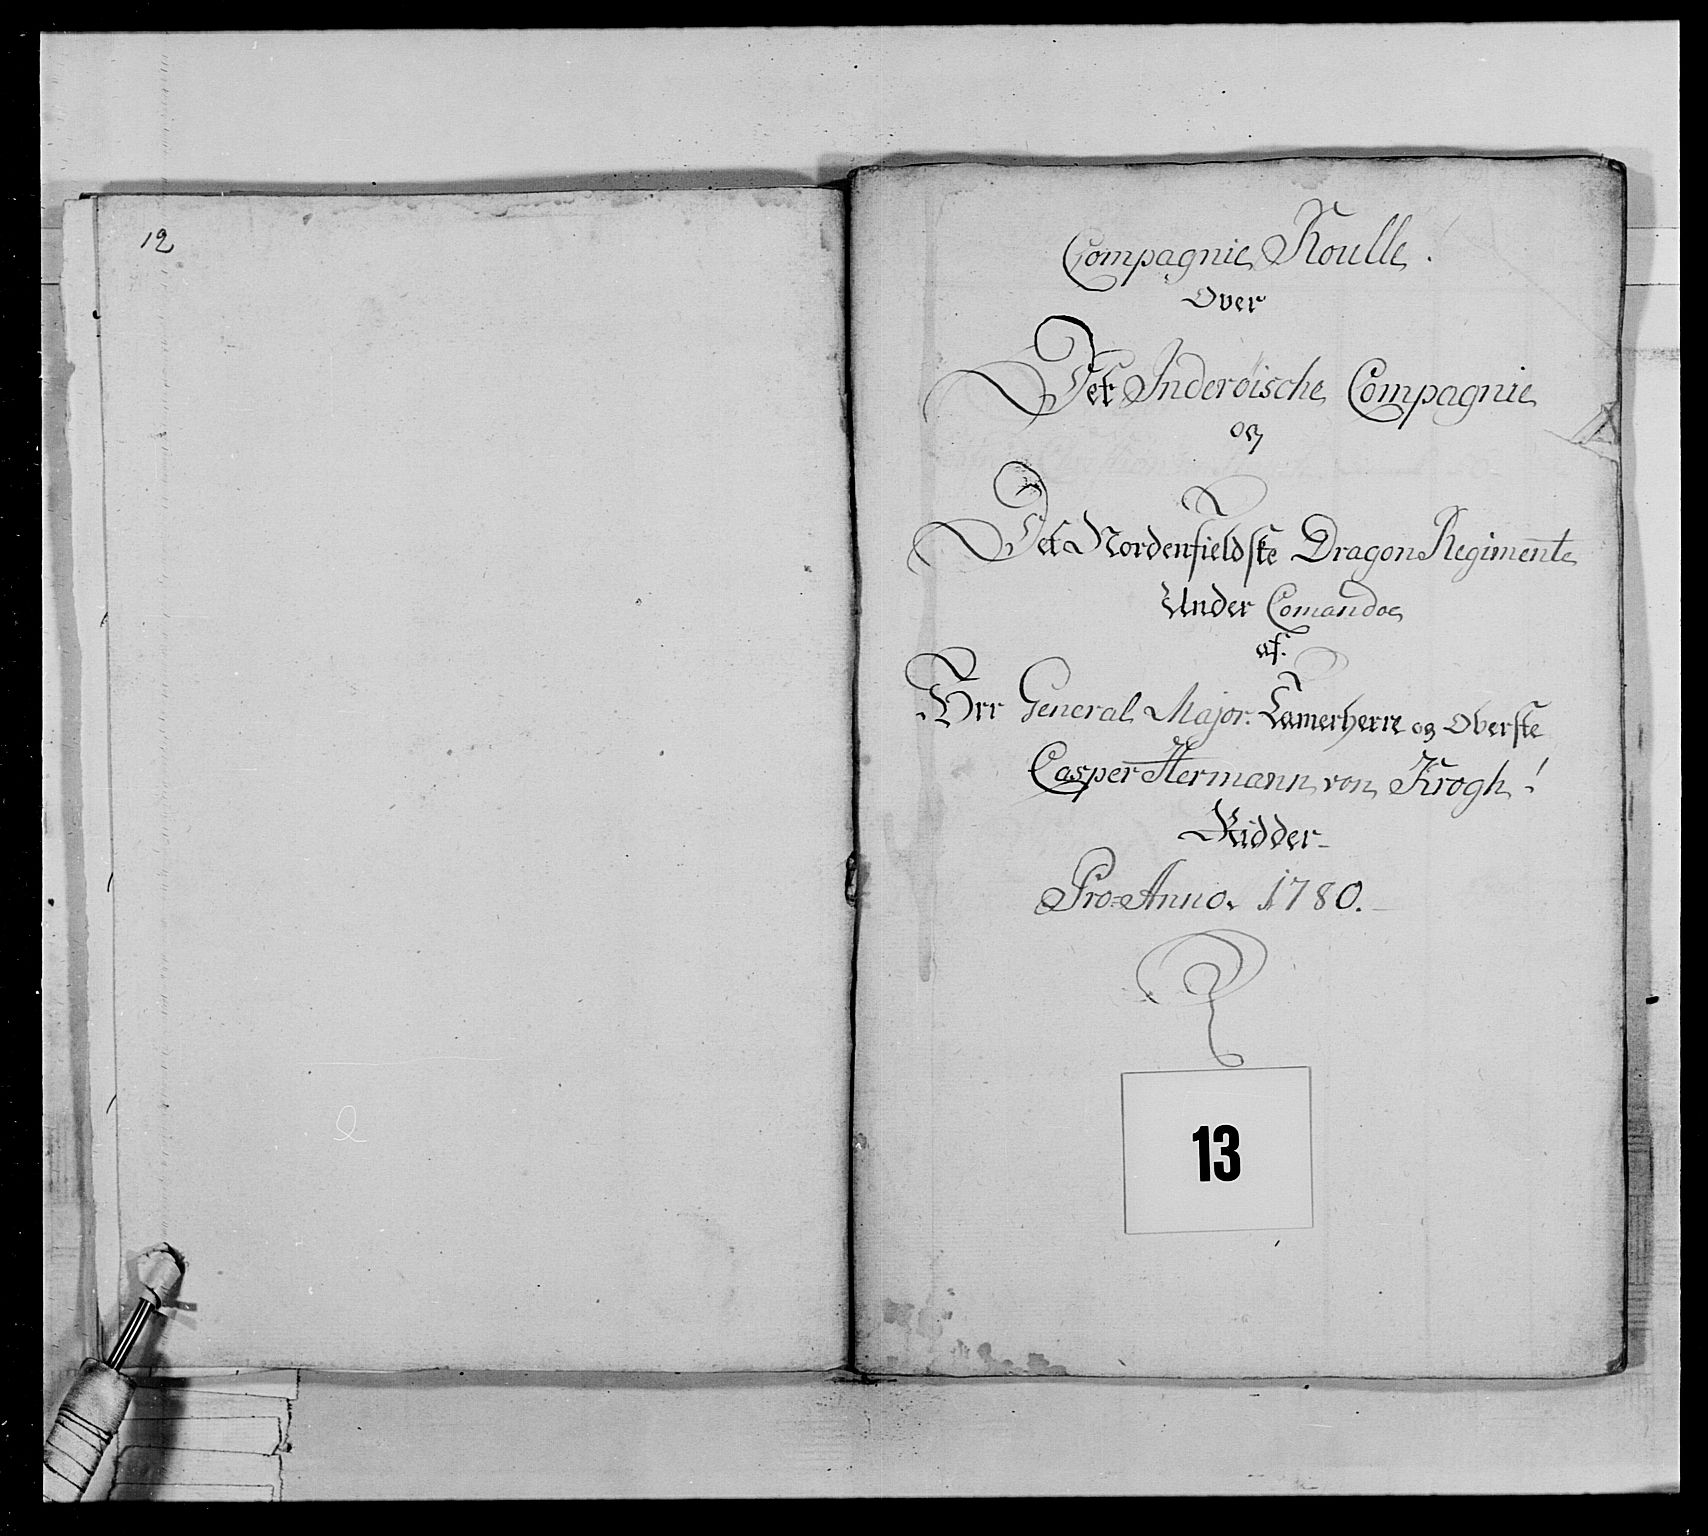 12
Compagnie Roulle!
Over
Det Inderöische Compagnie
og
Det Nordenfieldske Dragon Regimente
Under Comandoe
af.
Hrr General Major. Camerherre og Overste
Casper Hermann von Krogh!
Ridder-
Pro: Anno. 1780.
13